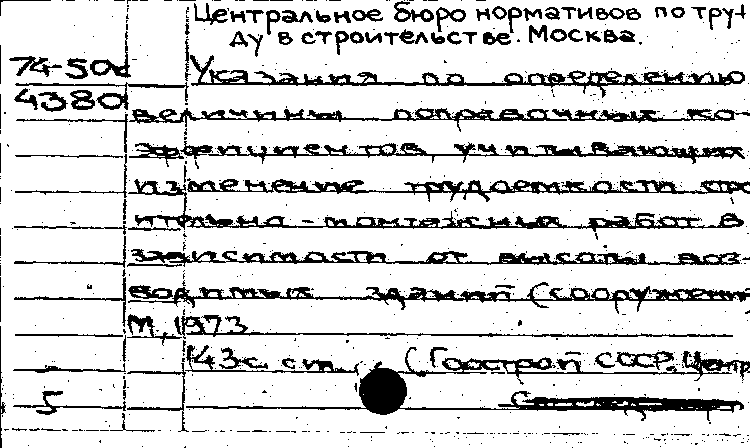 Центральное бюро нормативов по тру-
ду в строительстве. Москва.
74-50
4380 Указания по определению
величины поправочных ко-
эффициентов, учитывающих
изменение трудоемкости стро
ительно-монтажных работ в
зависимости от высоты воз-
водимых зданий (сооружений
М., 1973
143с. с (Госстрой СССР. Центр
5